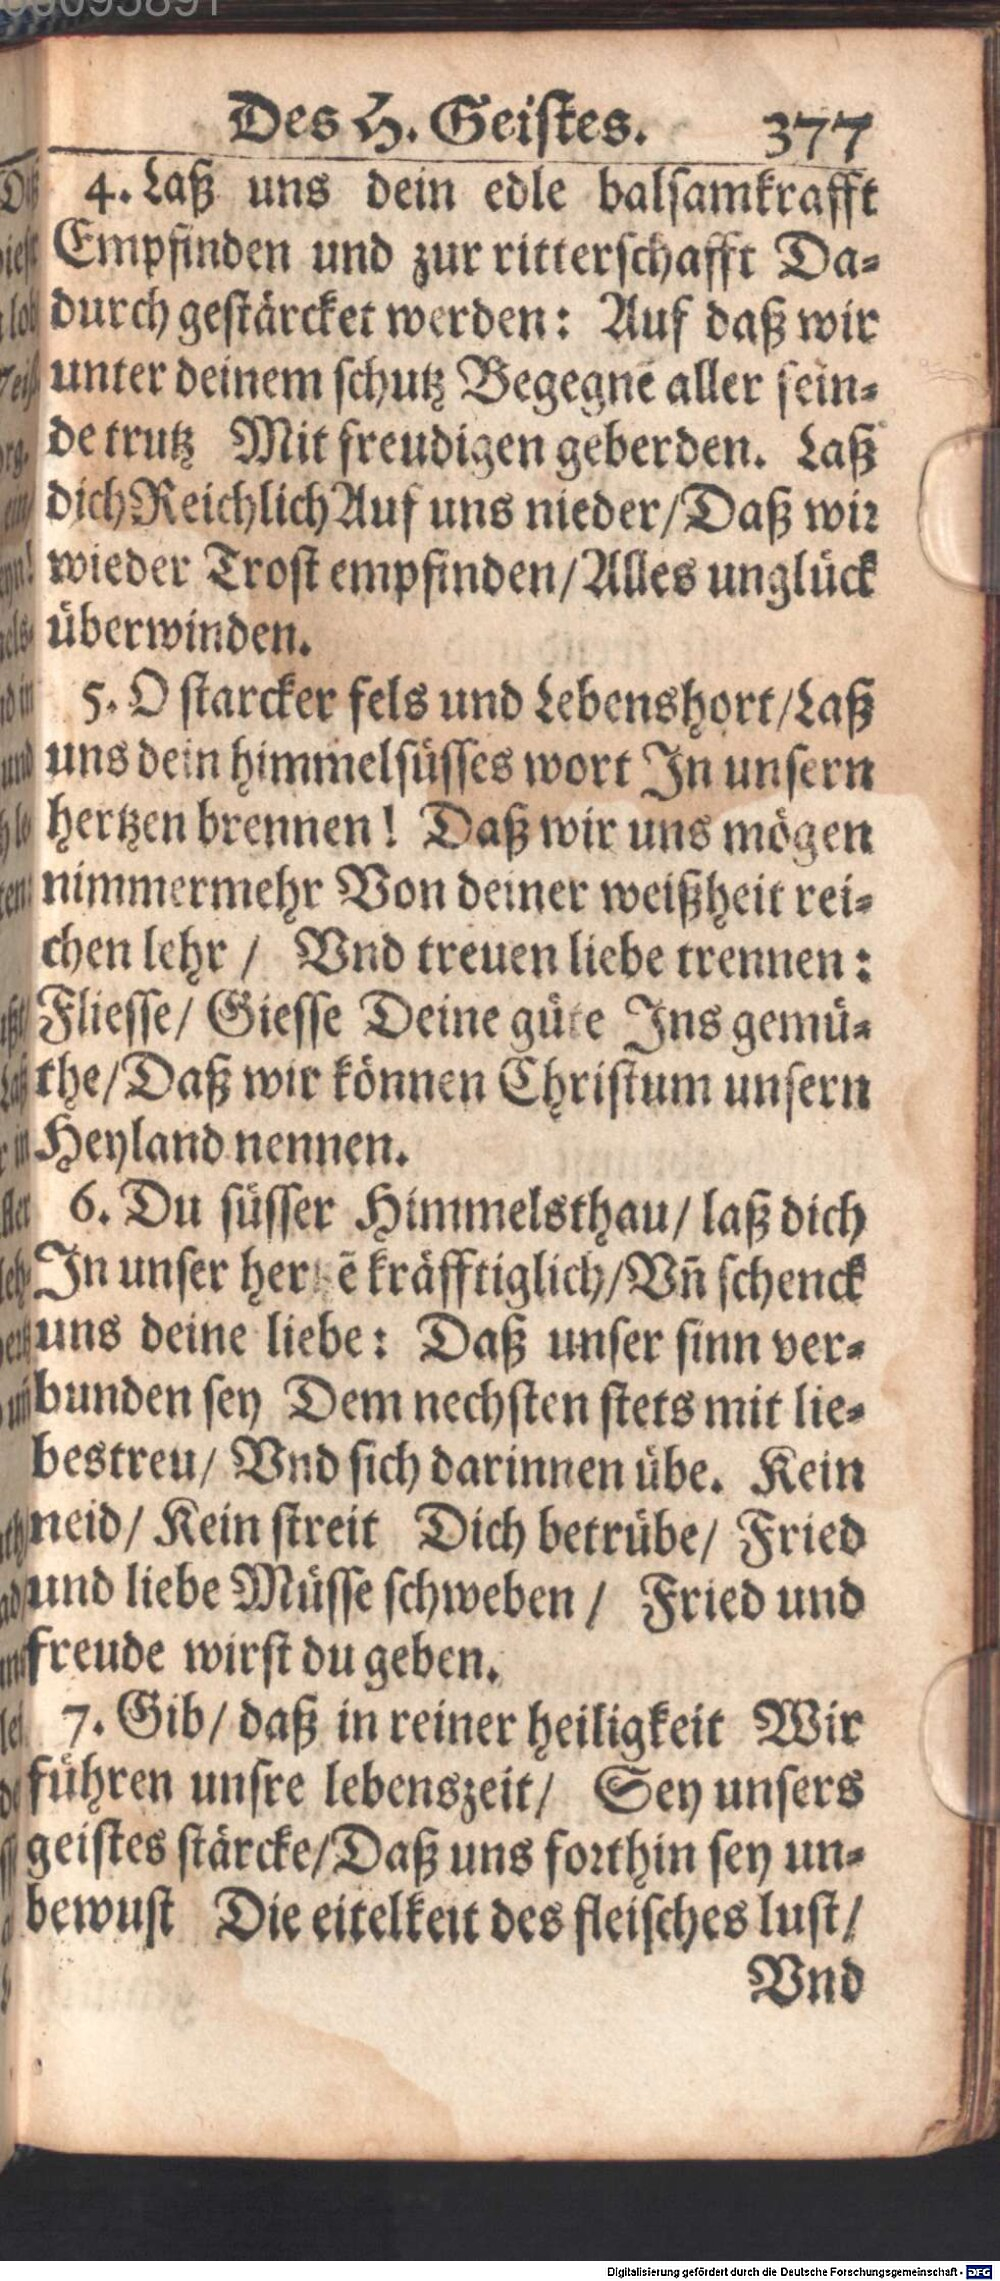 Des H. Geistes. 377
4. Laß uns dein edle balsamkrafft
Empfinden und zur ritterschafft Da-
durch gestärcket werden: Auf daß wir
unter deinem schutz Begegnē aller fein-
de trutz Mit freudigen geberden. Laß
dich Reichlich Auf uns nieder/Daß wir
wieder Trost empfinden/Alles unglück
überwinden.
5. O starcker fels und Lebenshort/Laß
uns dein himmelsüsses wort In unsern
hertzen brennen! Daß wir uns mögen
nimmermehr Von deiner weißheit rei-
chen lehr / Vnd treuen liebe trennen:
Fliesse/ Giesse Deine güte Ins gemü-
the/Daß wir können Christum unsern
Heyland nennen.
6. Du süsser Himmelsthau/ laß dich
In unser hertzē kräfftiglich/Vñ schenck
uns deine liebe: Daß unser sinn ver-
bunden sey Dem nechsten stets mit lie-
bestreu/ Vnd sich darinnen übe. Kein
neid/ Kein streit Dich betrübe/ Fried
und liebe Müsse schweben / Fried und
freude wirst du geben.
7. Gib/ daß in reiner heiligkeit Wir
führen unsre lebenszeit/ Sey unsers
geistes stärcke/Daß uns forthin sey un-
bewust Die eitelkeit des fleisches lust/
Vnd
Digitalisierung gefördert durch die Deutsche Forschungsgemeinschaft - DFG